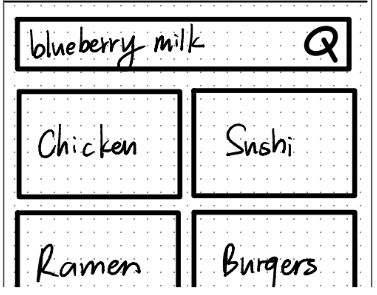 blueberry milk
Chicken
Sushi
Ramen
Burgers